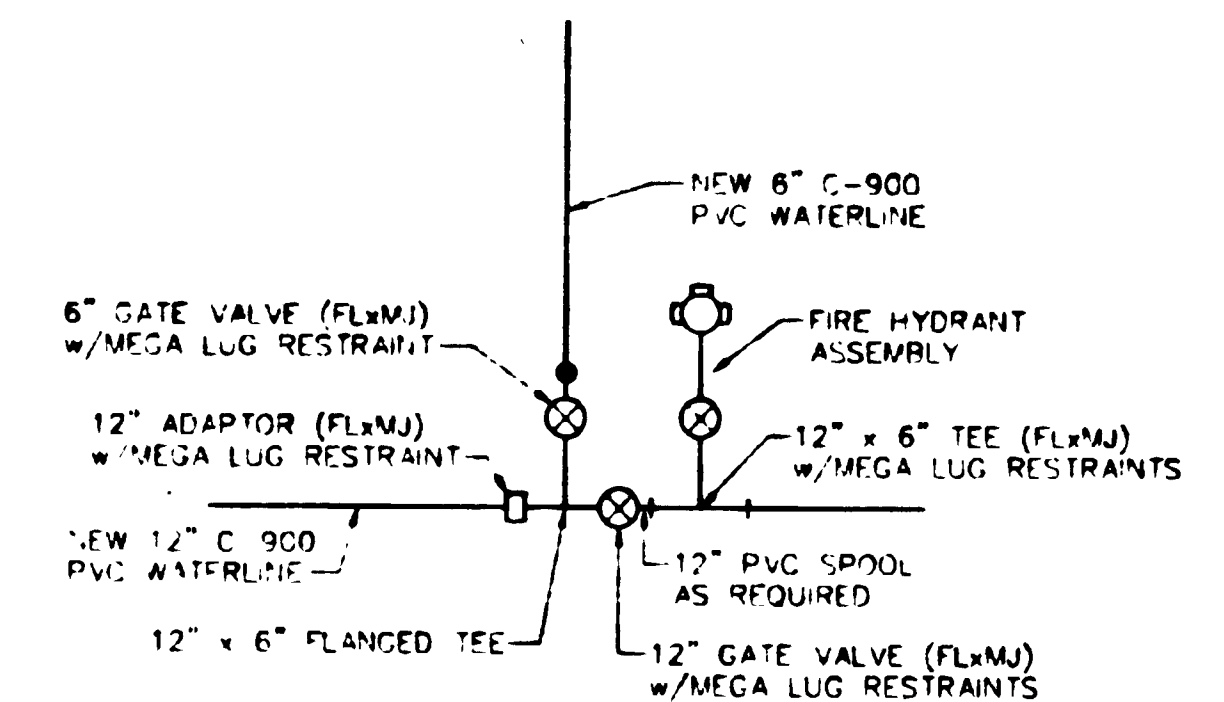 NEW 6" C-900
PVC WATERLINE
6" GATE VALVE (FLxMJ)
w/MEGA LUG RESTRAINT
FIRE HYDRANT
ASSEMBLY
12" ADAPTOR (FLxMJ)
w/MEGA LUG RESTRAINT
12" x 6" TEE (FLxMJ)
w/MEGA LUG RESTRAINTS
NEW 12" C 900
PVC WATERLINE
12" PVC SPOOL
AS REQUIRED
12" x 6" FLANGED TEE
12" GATE VALVE (FLxMJ)
w/MEGA LUG RESTRAINTS